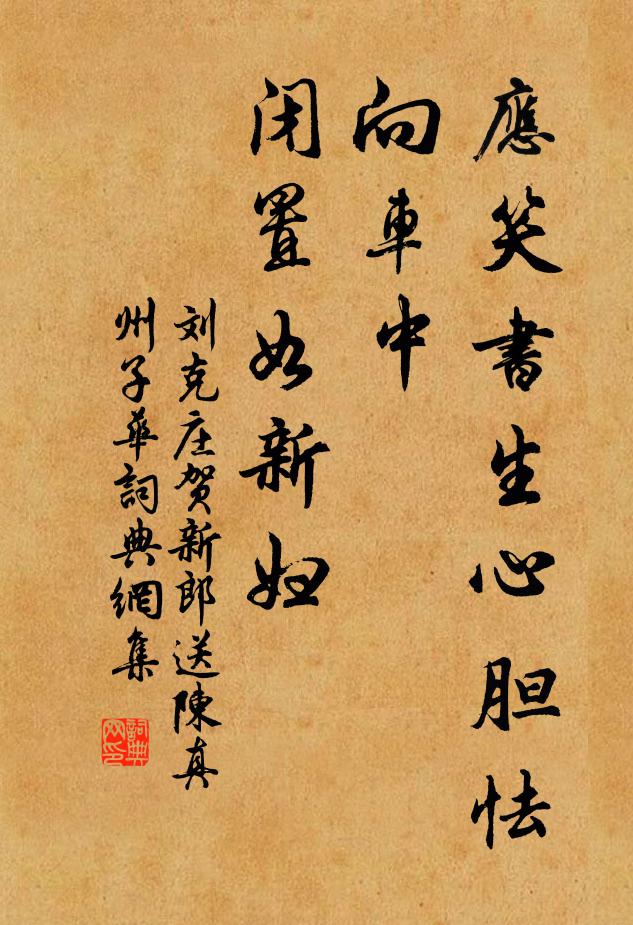 應笑書生心胆怯
向車中
闭置如新妇
刘克庄贺新郎送陳真
州子華詞典網集
詞典網印